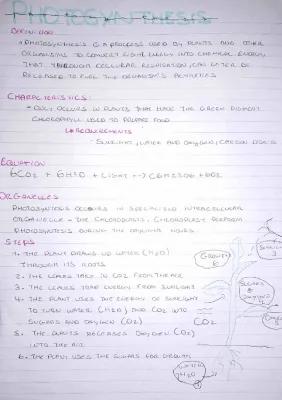 PHOTOSYNTHESIS
DEFINITION
• PHOTOSYNTHESIS IS A PROCESS USED BY PLANTS AND OTHER
ORGANISMS TO CONVERT LIGHT ENERGY INTO CHEMICAL ENERGY
THAT THROUGH CELLULAR RESPIRATION, CAN LATER BE
RELEASED TO FUEL THE ORGANISM'S ACTIVITIES
CHARACTERISTICS:
• ONLY OCCURS IN PLANTS THAT HAVE THE GREEN PIGMENT
CHLOROPHYLL USED TO PREPARE FOOD
REQUIREMENTS
- SUNLIGHT, WATER AND OXYGEN, CARBON DIOXIDE
EQUATION
6CO2 + 6H2O + LIGHT -> C6H12O6 + 6O2
ORGANELLES
PHOTOSYNTESIS OCCURS IN SPECIALIZED INTERCELLULAR
ORGANELLE - THE CHLOROPLASTS. CHLOROPLAST PERFORM
PHOTOSYNTHESIS DURING THE DAYLIGHT HOURS
STEPS
1. THE PLANT DRAWS UP WATER (H2O)
THROUGH ITS ROOTS
2. THE LEAVES TAKE IN CO2 FROM THE AIR
3. THE LEAVES TRAP ENERGY FROM SUNLIGHT
4. THE PLANT USES THE ENERGY OF SUNLIGHT
TO TURN WATER (H2O) AND CO2 INTO
SUGARS AND OXYGEN (O2)
5. THE PLANTS RELEASES OXYGEN (O2)
INTO THE AIR
6. THE PLANT USES THE SUGARS FOR GROWTH
GROWTH
6
3
SUGARS
&
OXYGEN
CO2
WATER
H2O